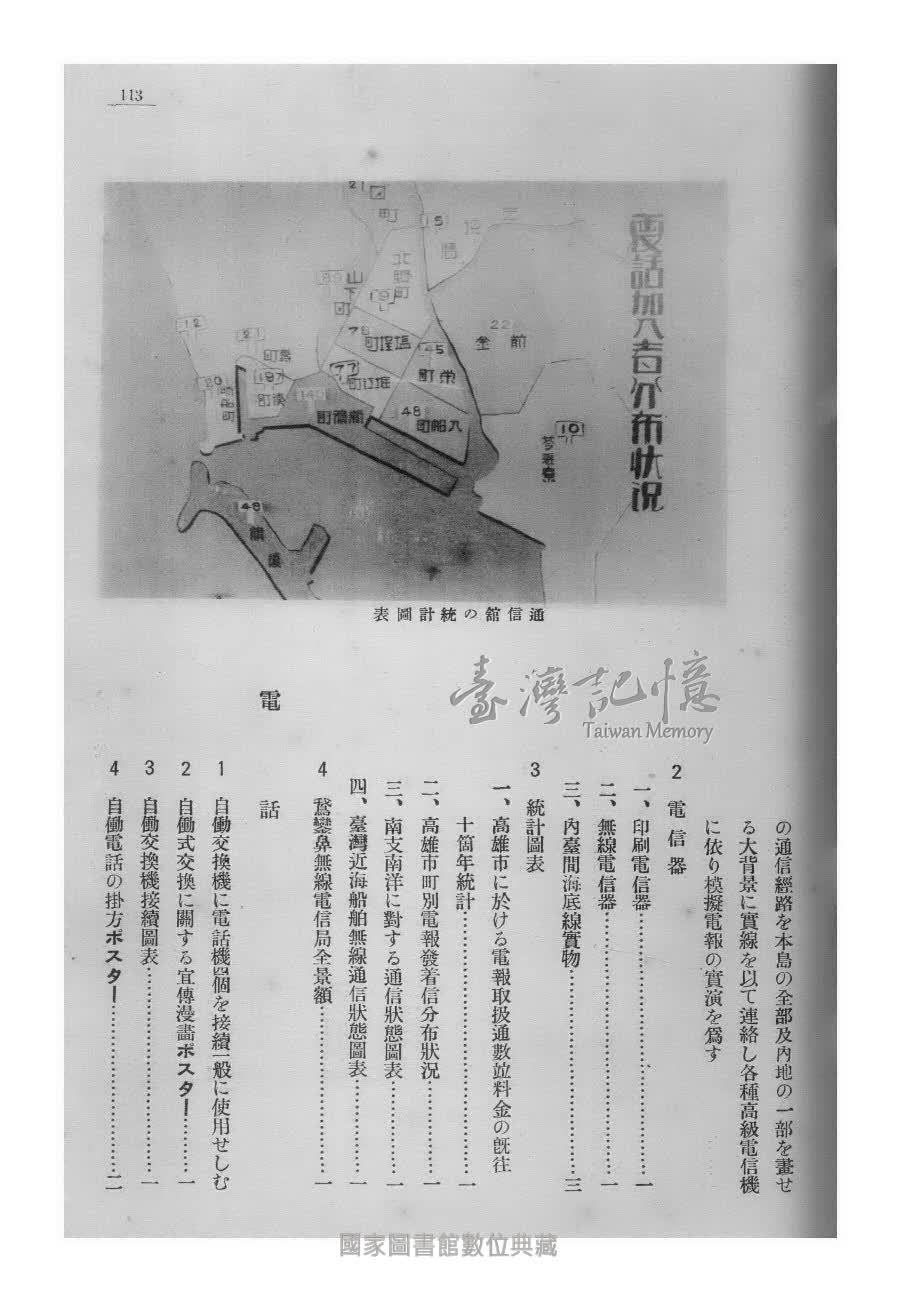 113
電話加入者分布狀況
21
町
15
三
北野町
89
山下町
19
12
21
78
塩埕町
45
榮町
22
前金
20
哨船町
壽町
187
湊町
77
堀江町
140
新濱町
48
入船町
10
苓雅寮
48
旗後
通信舘の統計圖表
臺灣記憶
Taiwan Memory
の通信經路を本島の全部及內地の一部を畫せ
る大背景に實線を以て連絡し各種高級電信機
に依り模擬電報の實演を爲す
2 電信器
一、印刷電信器……………………一
二、無線電信器……………………一
三、內臺間海底線實物……………………三
3 統計圖表
一、高雄市に於ける電報取扱通數竝料金の旣往
十箇年統計……………………一
二、高雄市町別電報發着信分布狀況…………一
三、南支南洋に對する通信狀態圖表…………一
四、臺灣近海船舶無線通信狀態圖表…………一
4 鵞鑾鼻無線電信局全景額……………………一
電話
1 自働交換機に電話機四個を接續一般に使用せしむ
2 自働式交換に關する宣傳漫畫ポスター………一
3 自働交換機接續圖表……………………一
4 自働電話の掛方ポスター……………………二
國家圖書館數位典藏